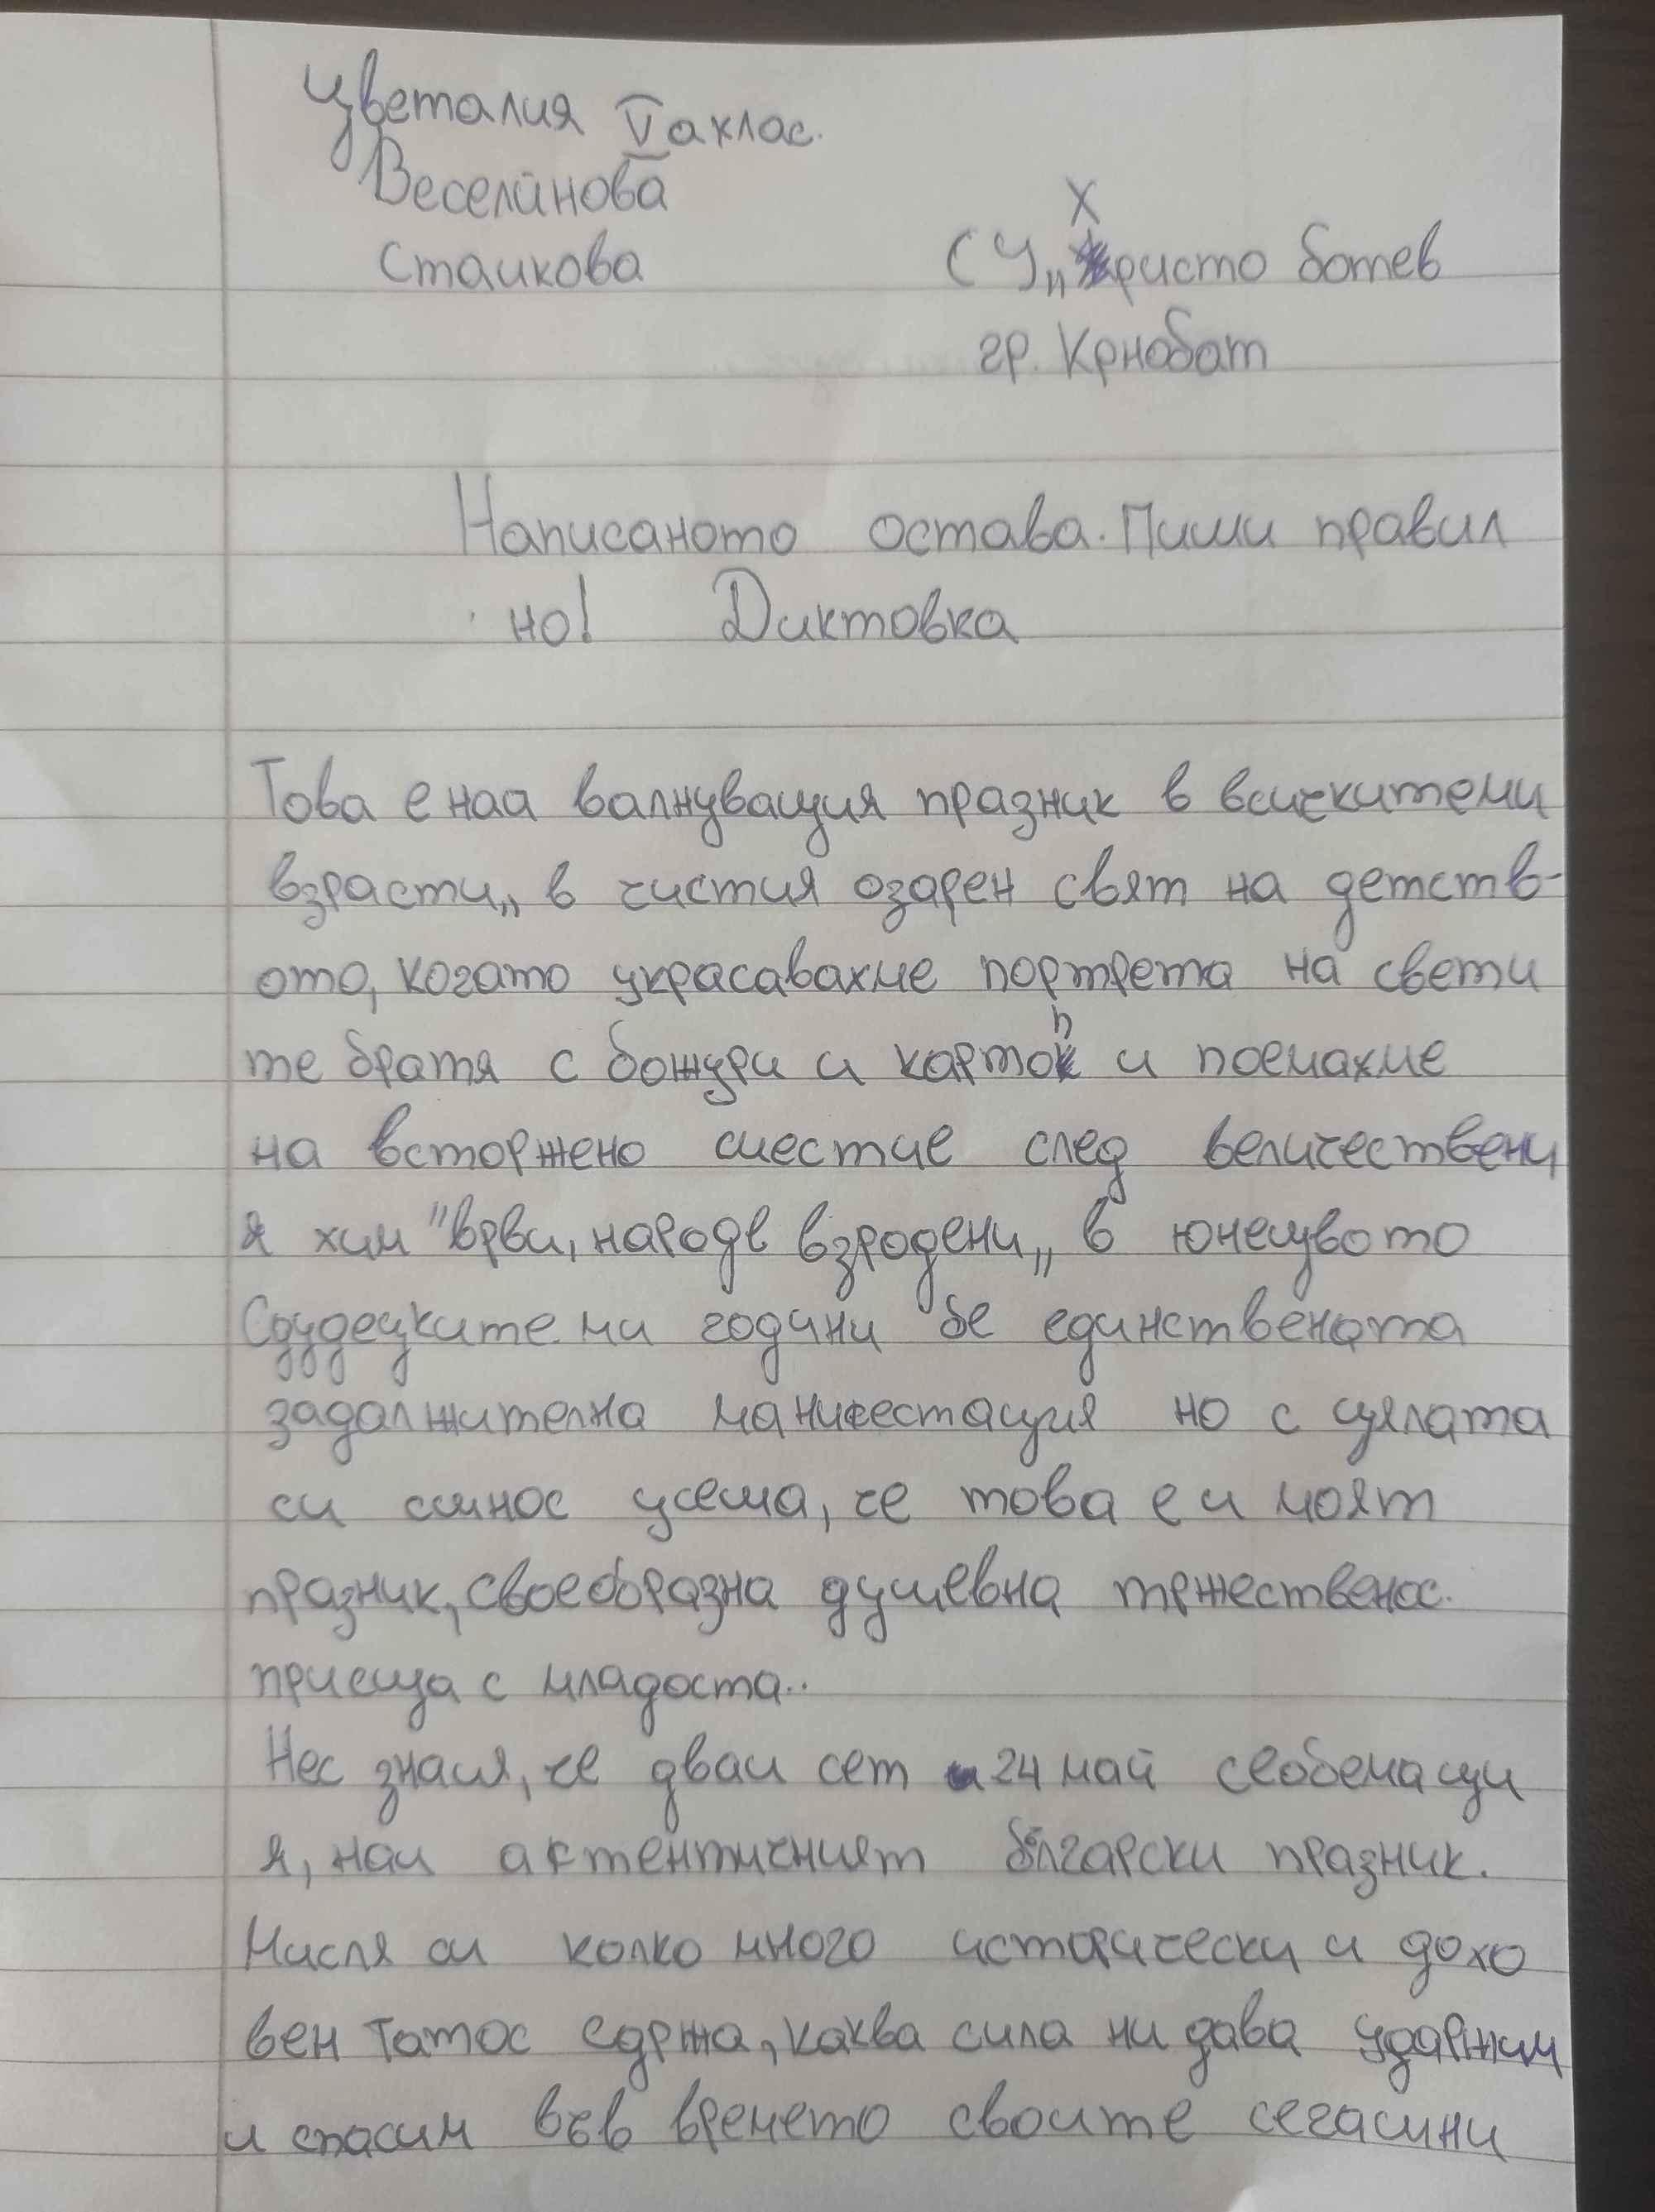 Цветалия V а клас.
Веселинова
Стаикова
Х
СУ „ христо ботев
гр. Крнобат
Написаното остава. Пиши правил
но! Диктовка
Това е наа валнуващия празник в всичкитеми
взрасти„ в чистия озарен свят на детств-
ото, когато украсавахме портрета на свети
те братя с божури и картон и поемахме
на всторжено шестие след величествени
я хим "врви, народе взродени„ в юнещвото
Сдудецките ми години бе единствената
задалжителна манифестация но с цялата
си сшнос усеша, че това е и моят
празник, своеобразна душевна тржественос.
присща с младоста..
Нес зная, че дваи сет 24 май себемащи
я, наи актентичният блгарски празник.
Мисля си колко много исторически и дохо
вен татос сдржа, каква сила ни дава ударжим
и спасим във времето своите сегашни